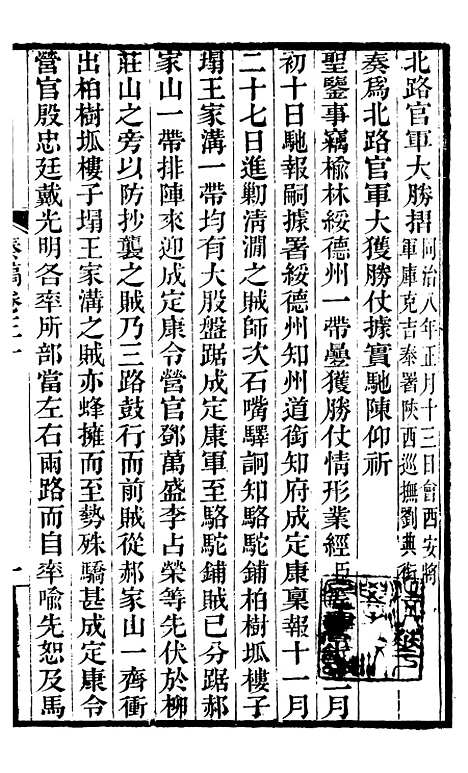 北路官軍大勝摺同治八年正月十三日會西安將
軍庫克吉泰署陝西巡撫劉典銜
奏爲北路官軍大獲勝仗據實馳陳仰祈
聖鑒事竊榆林綏德州一帶曡獲勝仗情形業經臣二月
初十日馳報嗣據署綏德州知州道銜知府成定康稟報十一月
二十七日進勦淸澗之賊師次石嘴驛詗知駱駝鋪柏樹坬樓子
塌王家溝一帶均有大股盤踞成定康軍至駱駝鋪賊已分踞郝
家山一帶排陣來迎成定康令營官鄧萬盛李占榮等先伏於柳
莊山之旁以防抄襲之賊乃三路鼓行而前賊從郝家山一齊衝
出柏樹坬樓子塌王家溝之賊亦蜂擁而至勢殊驕甚成定康令
營官殷忠廷戴光明各率所部當左右兩路而自率喩先恕及馬
奏稿卷三十